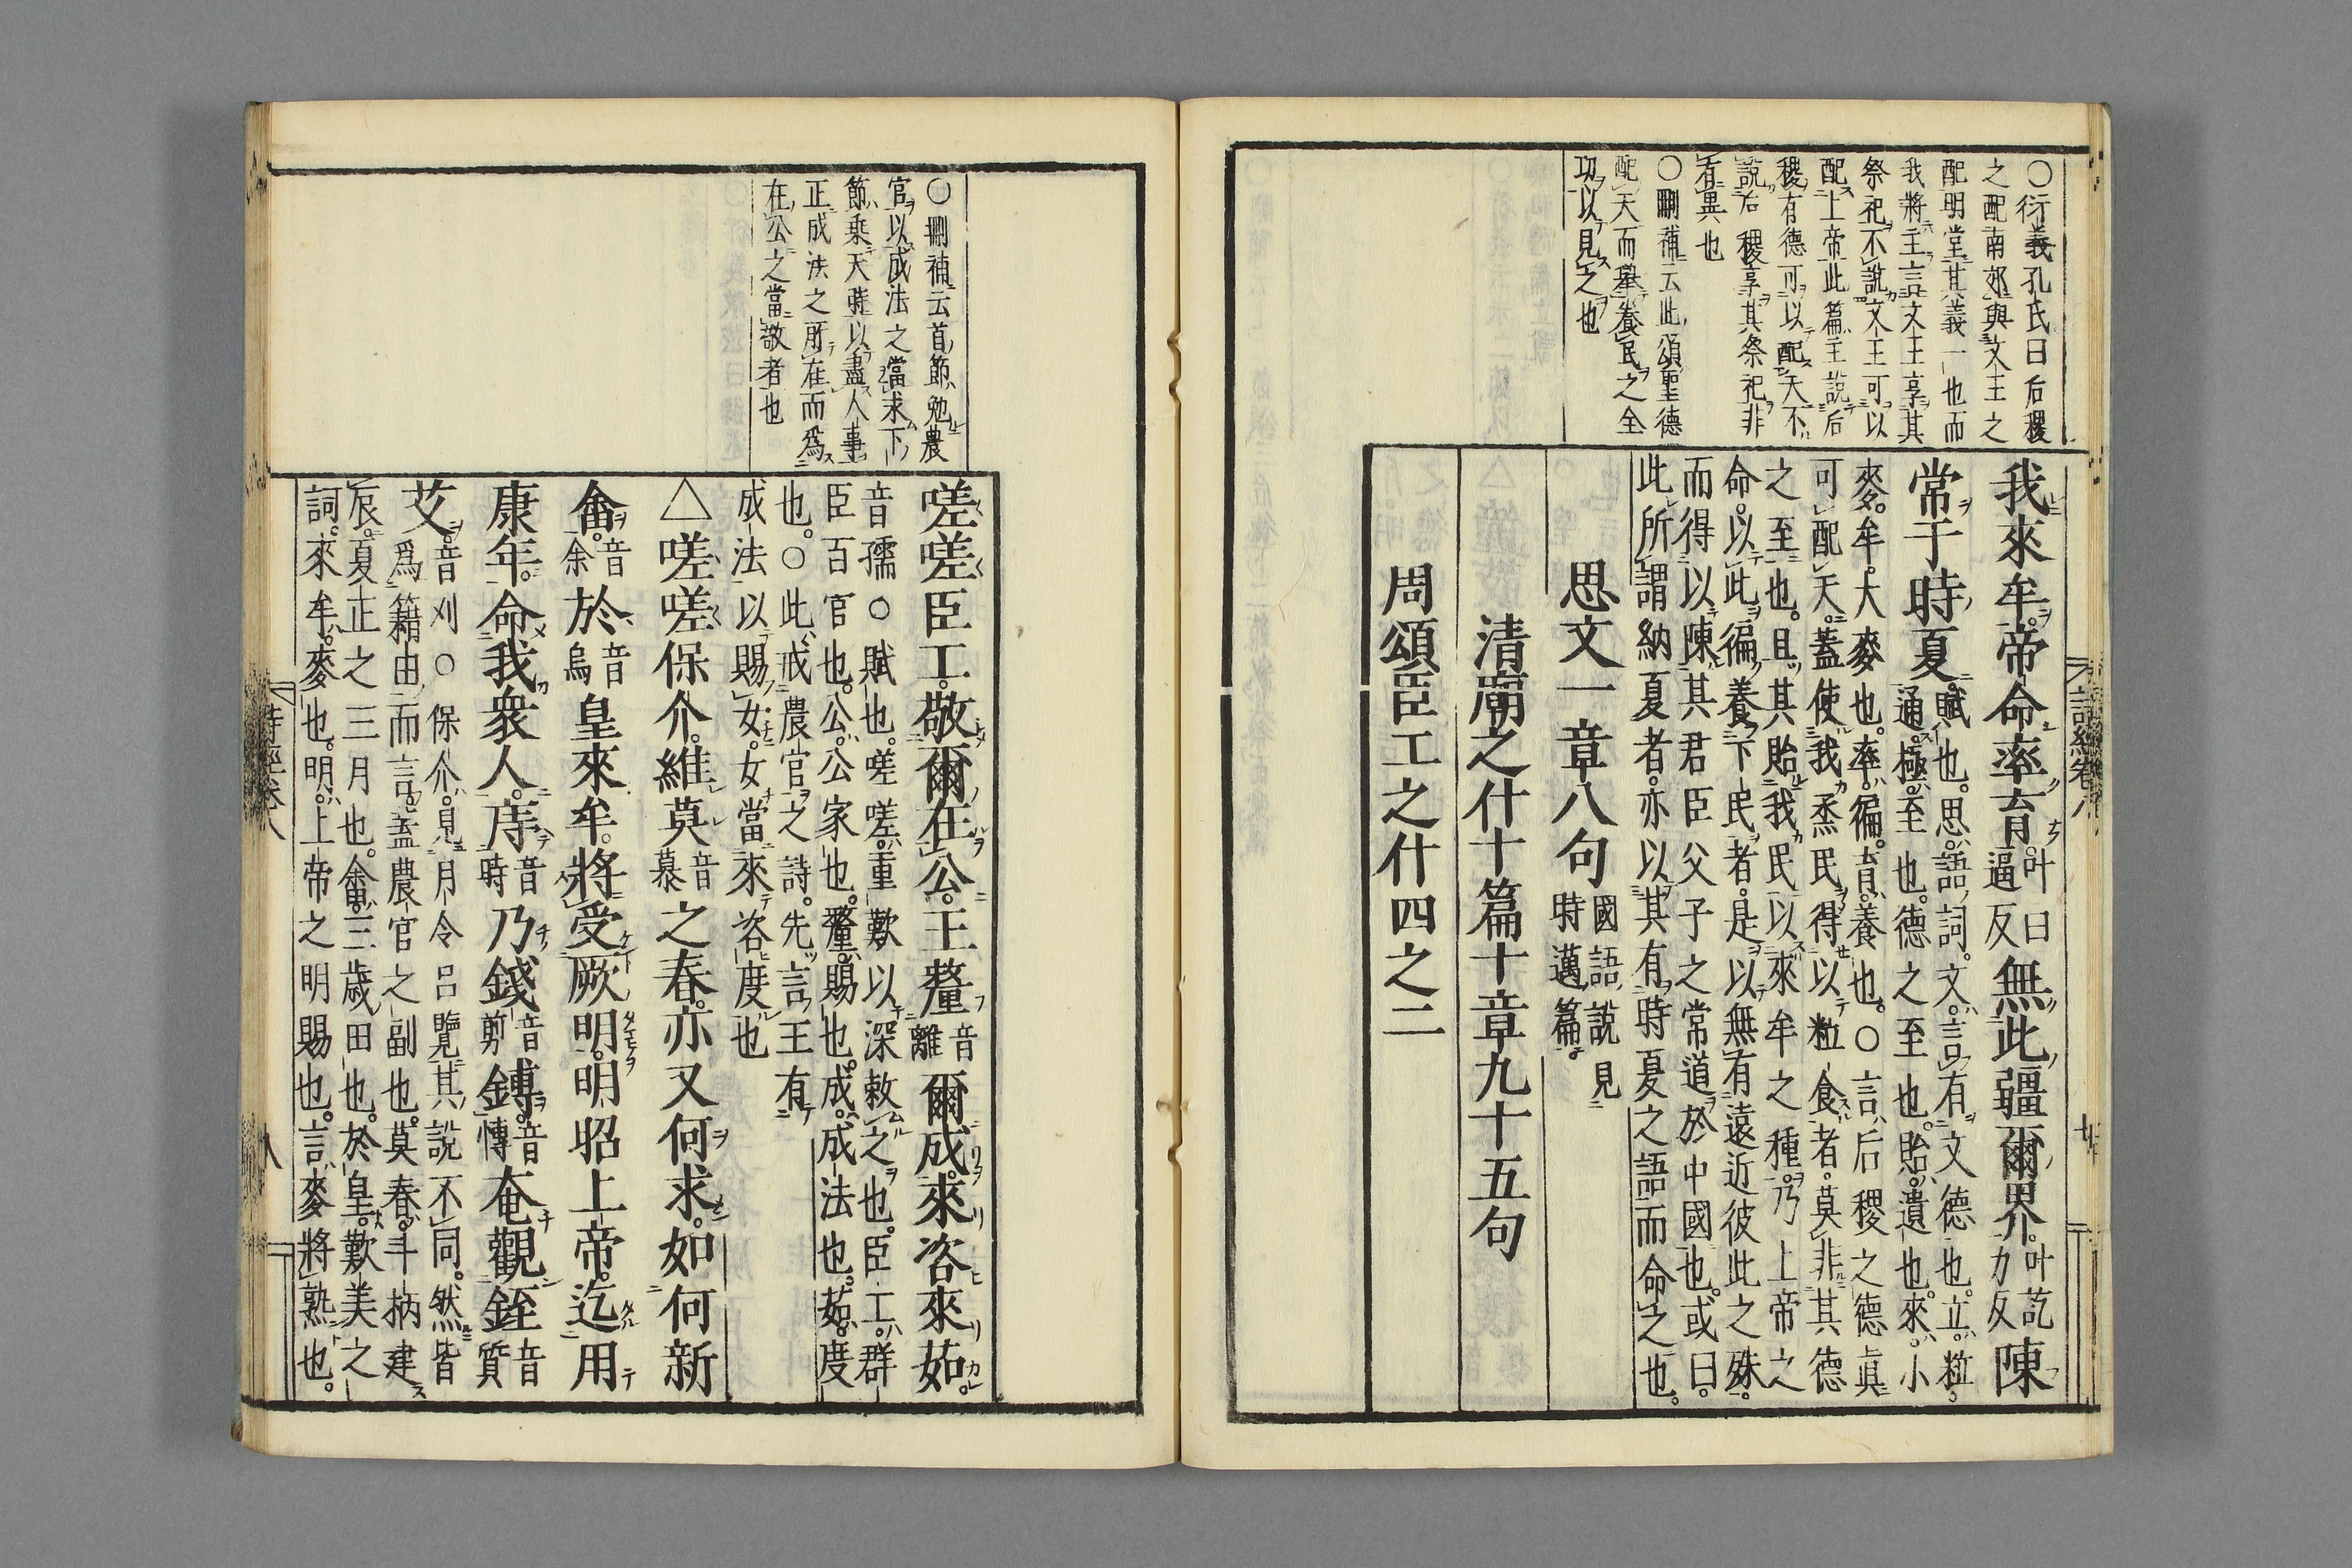 ○衍義孔氏曰后稷
之配南郊與文王之
配明堂其義一也而
我將主言文王享其
祭祀不說文王可以
配上帝此篇主說后
稷有德可以配天不
說后稷享其祭祀非
有異也
○刪補云此頌聖德
配天而擧養民之全
功以見之也
我來牟帝命率育叶曰逼反無此疆爾界叶訖力反陳
常于時夏賦也思語詞文言有文德也立粒
通極至也德之至也貽遺也來小
麥牟大麥也率徧育養也○言后稷之德眞
可配天蓋使我烝民得以粒食者莫非其德
之至也且其貽我民以來牟之種乃上帝之
命以此徧養下民者是以無有遠近彼此之殊
而得以陳其君臣父子之常道於中國也或曰
此所謂納夏者亦以其有時夏之語而命之也
思文一章八句國語說見時邁篇
清廟之什十篇十章九十五句
周頌臣工之什四之二
詩經卷八
○刪補云首節勉農
官以成法之當求下
節乘天時以盡人事
正成法之所在而爲
在公之當敬者也
嗟嗟臣工敬爾在公王釐音離爾成來咨來茹
音孺○賦也嗟嗟重歎以深敕之也臣工群
臣百官也公公家也釐賜也成成法也茹度
也○此戒農官之詩先言王有
成法以賜女女當來咨度也
△嗟嗟保介維莫音慕之春亦又何求如何新
畬音余於音烏皇來牟將受厥明明昭上帝迄用
康年命我衆人庤音時乃錢音剪鎛音慱奄觀銍音質
艾音刈○保介見月令呂覽其說不同然皆
爲籍田而言蓋農官之副也莫春斗柄建
辰夏正之三月也畬三歲田也於皇歎美之
詞來牟麥也明上帝之明賜也言麥將熟也
詩經卷八
八